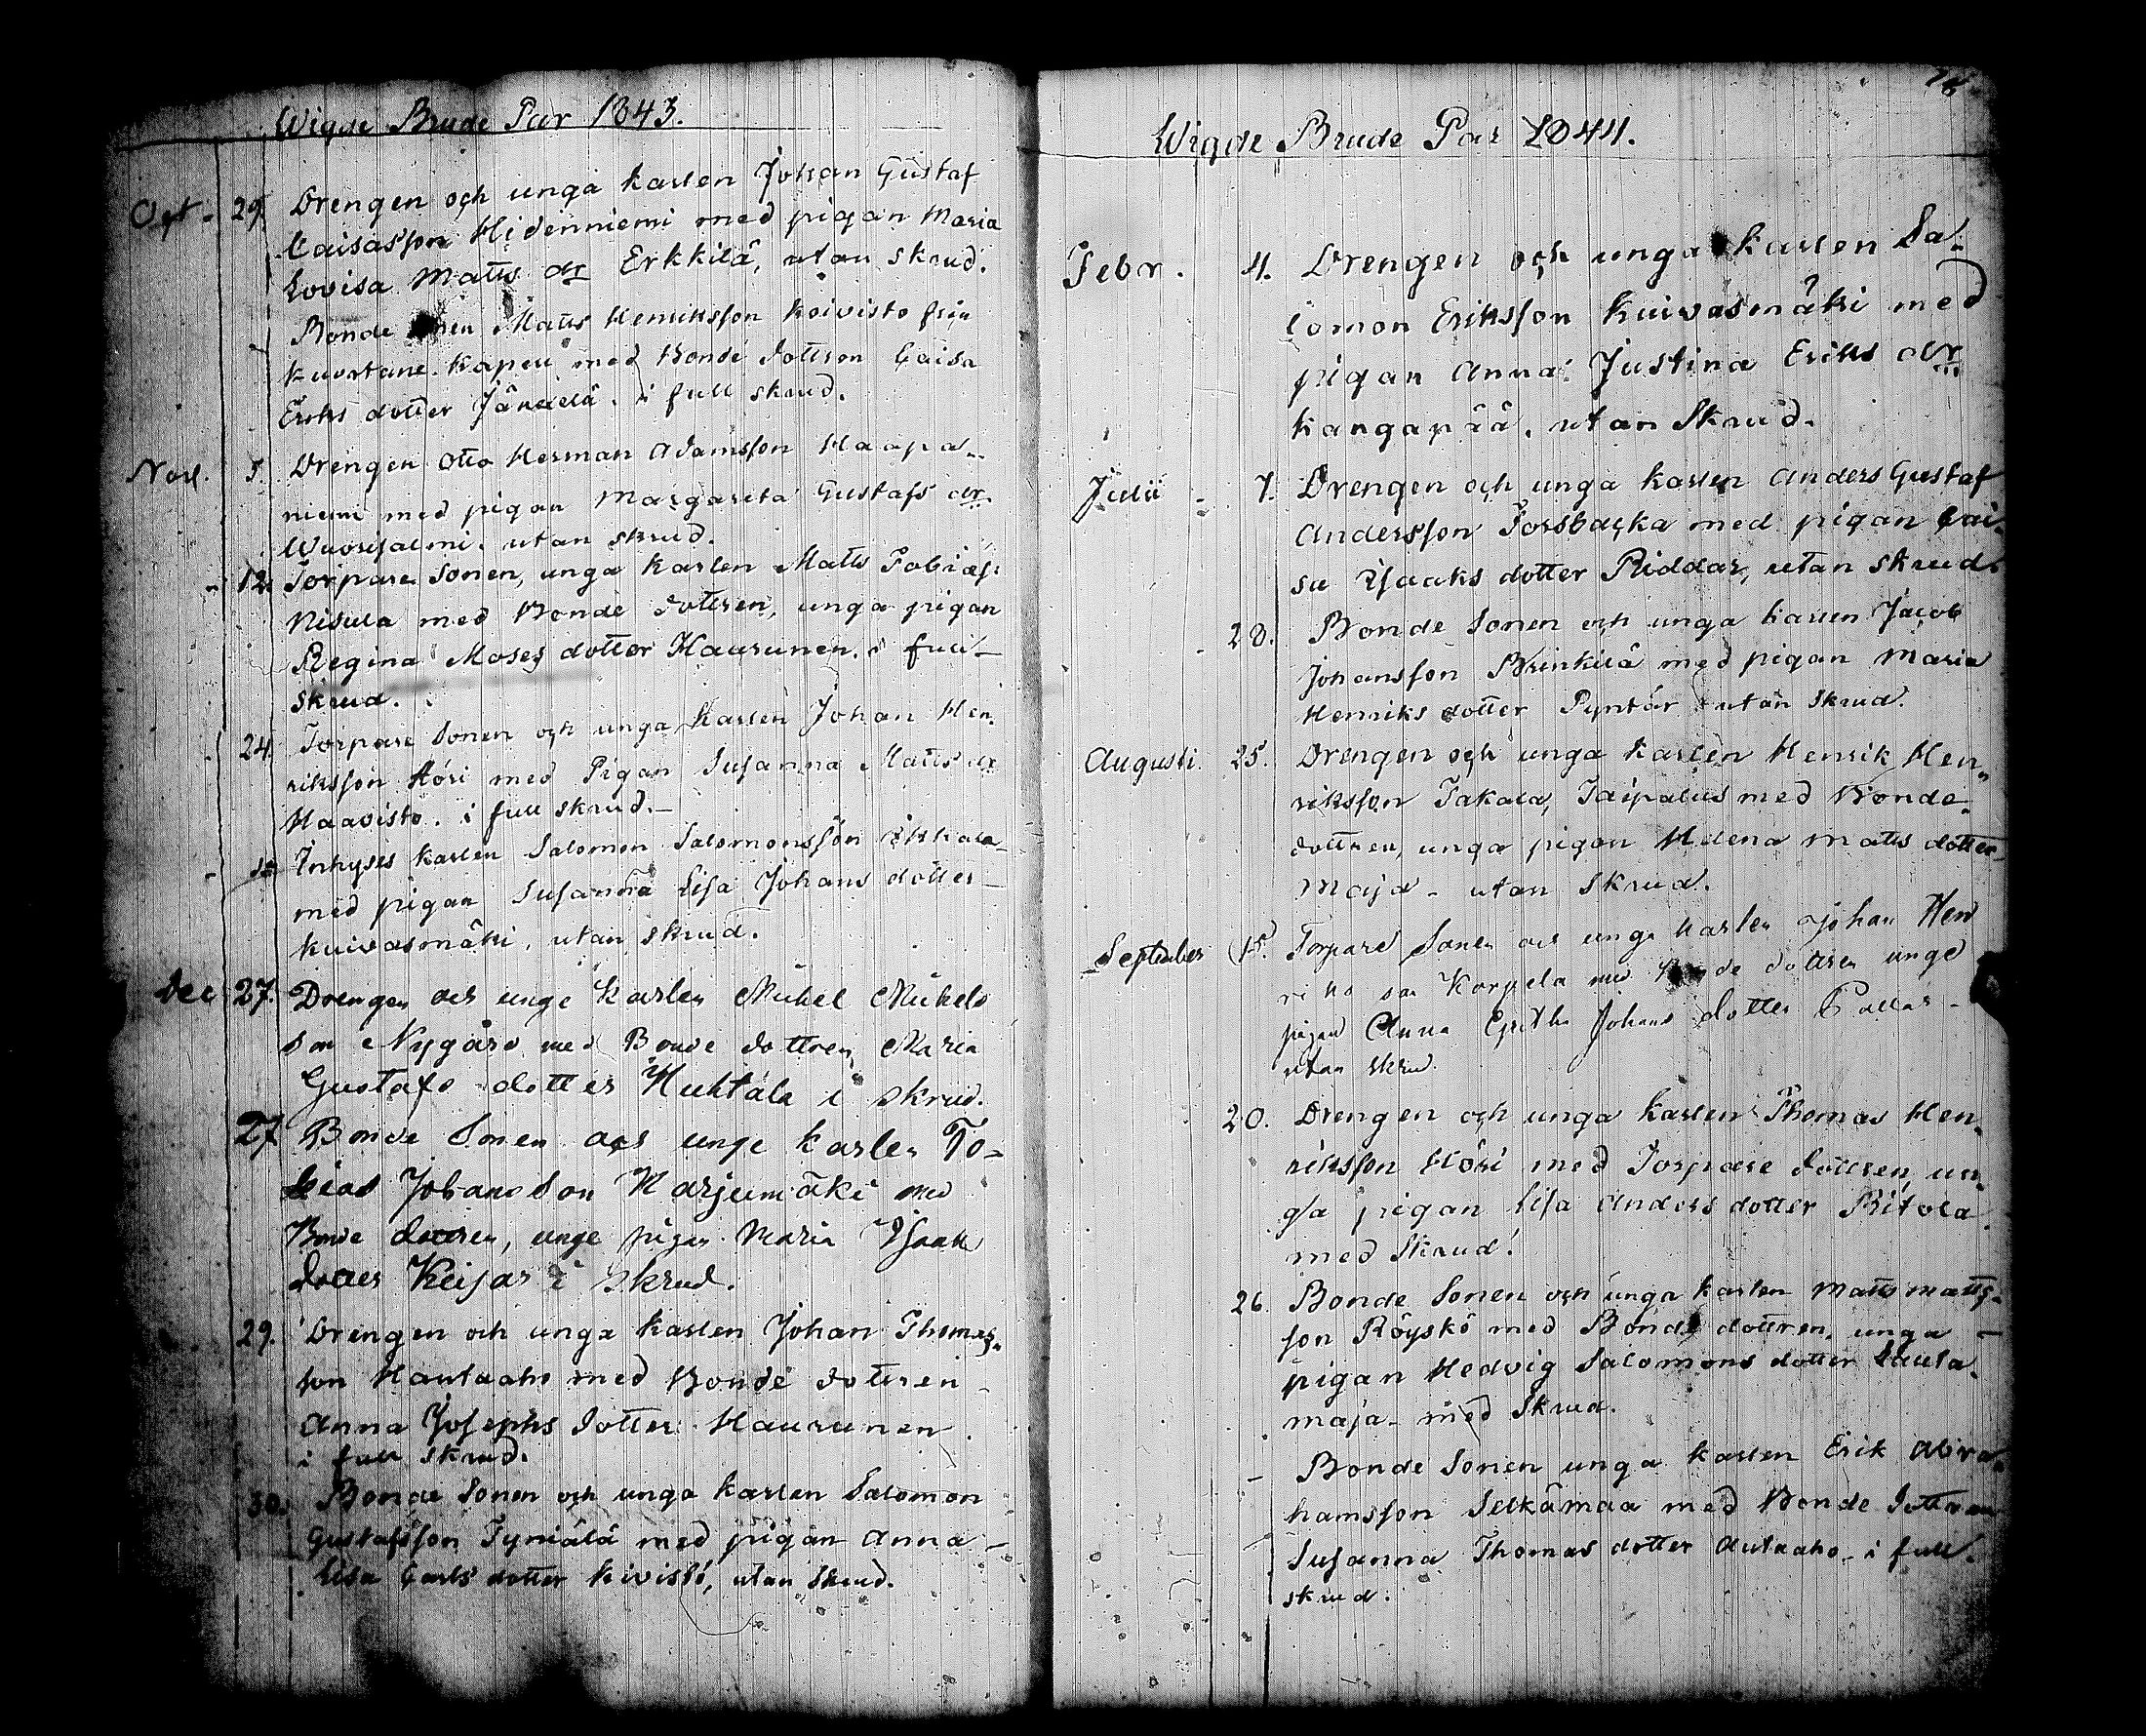 Wigde Brude Par 1843.
Oct. 29. Drengen och unga karlen Johan Gustaf
Caisasson Hidenniemi med pigan Maria
Lovisa Matts dr Erkkilä, utan skrud.
Bonde Matts Henriksson Koivisto från
Kuortane Kapell med Bonde dottren Caisa
Eriks dotter i full skrud.
Nov. 5. Drengen Otto Herman Adamsson Haapa-
niemi med pigan Margareta Gustafs dr.
Wuorisalmi. utan skrud.
- 12. Torpare Sonen, unga karlen Matts Tobiass:
Nisula med Bonde dottren, unga pigan
Regina Moses dotter Haurunen. i full
skrud.
- 24. Torpare Sonen och unga karlen Johan Hen-
riksson Höri med Pigan Susanna Matts dr
Haavisto. i full skrud.
- Inhyses karlen Salomon Salomonsson
med pigan Susanna Lisa Johans dotter
Kuivasmäki, utan skrud.
Dec 27. Drengen och unge karlen Mikel Mikels
son Nygård med Bonde dottren Maria
Gustafs dotter Huhtala i skrud.
27 Bonde Sonen och unge karlen To-
bias Johansson Marjumäki med
Bonde dottren, unge pigan Maria Isaaks
dotter Keisar i skrud.
29. Drengen och unga karlen Johan Thomas-
son Hautaaho med Bonde dottren
Anna Josephs dotter Haurunen
i full skrud.
30. Bonde Sonen och unga karlen Salomon
Gustafsson Tyniälä med pigan Anna
Lisa Carls dotter Kivistö, utan skrud.
Wigde Brude Par 1844.
Febr. 4. Drengen och unga karlen Sa-
lomon Eriksson Kuivasmäki med
pigan Anna Justina Eriks dr
Kangapää, utan Skrud.
Julii - 7. Drengen och unga karlen Anders Gustaf
Andersson Forsbacka med pigan Cai-
sa Isaaks dotter Riddar, utan skrud.
- 28. Bonde Sonen och unga karlen Jacob
Johansson Brinkilä med pigan Maria
Henriks dotter Pyntär utan skrud.
Augusti. 25. Drengen och unga karlen Henrik Hen-
riksson Takala, Taipalus med Bonde
dottren, unga pigan Helena Matts dotter
Maja - utan skrud.
September 15. Torpare Sonen och unge karlen Johan Hen
riks son Korpela med Bonde dottren unge
pigan Anna Greta Johans dotter Pallar -
utan skrud.
20. Drengen och unga karlen Thomas Hen-
riksson Höri med Torpare dottren, un-
ga pigan Lisa Anders dotter Ritola
med Skrud.
26. Bonde Sonen och unga karlen Matts Matts-
son Röyskö med Bonde dottren, unga
pigan Hedvig Salomons dotter
maja - med Skrud.
- Bonde Sonen unga karlen Erik Abra-
hamsson Selkämaa med Bonde dottren
Susanna Thomas dotter Autaaho - i full
skrud.